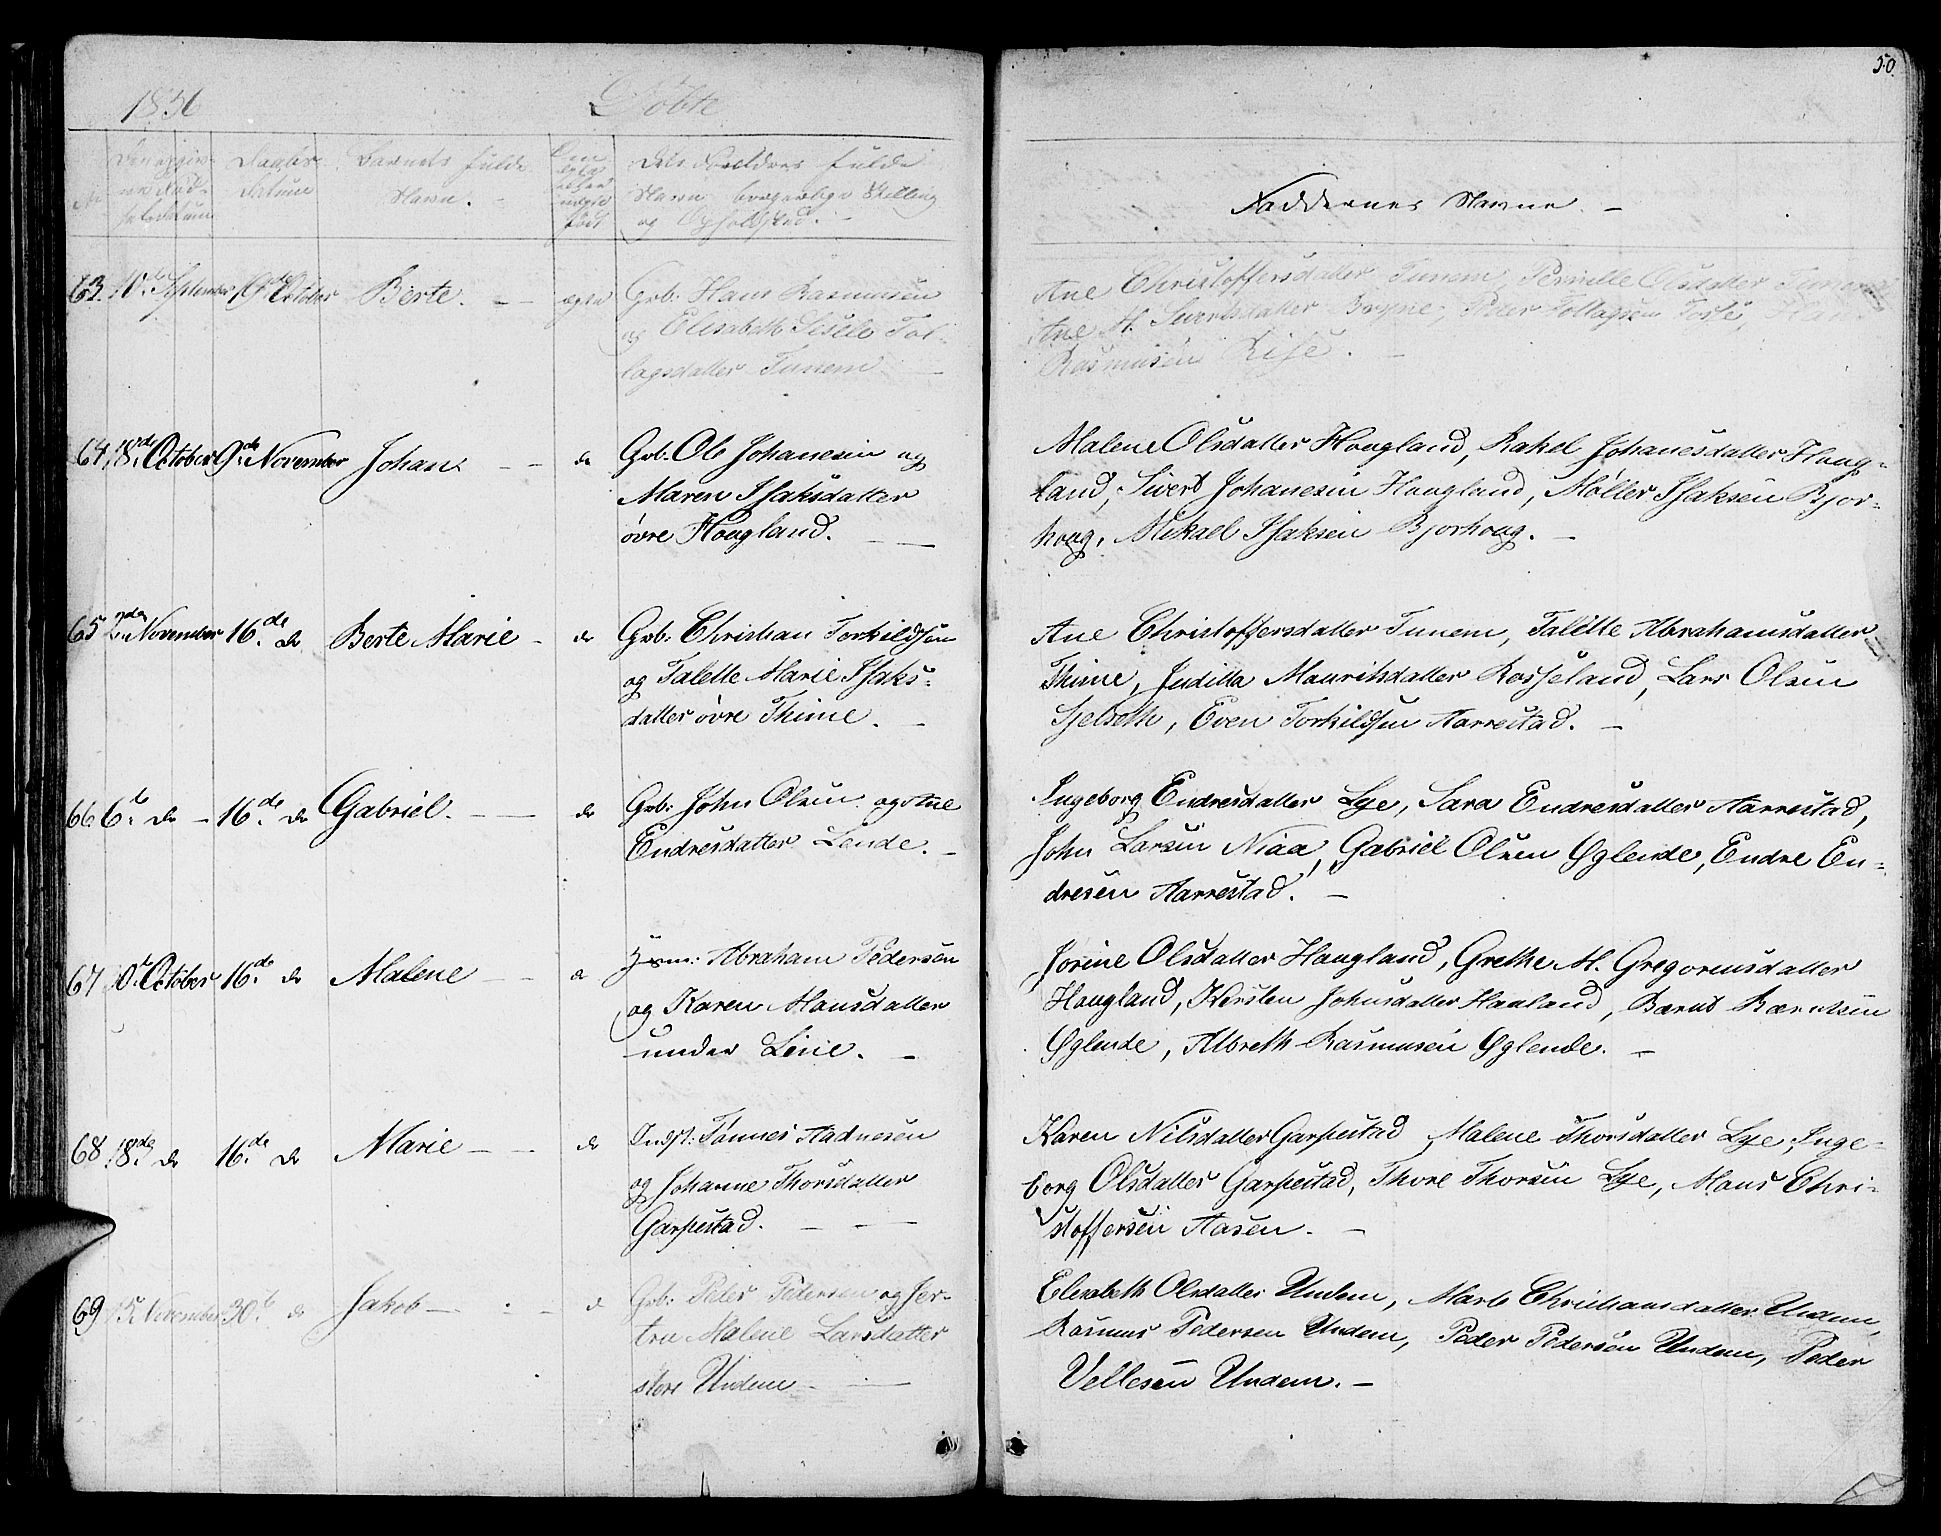 50
1856
Døbte
Barnets fulde
Navn.
og Opholdsted.
Faddernes Navne. -
63. 10de September 19de October Berte. - ægte Grb: Hans Rasmusen
og Elisabeth Sisele Tol-
lagsdatter Tunem
Ane Christoffersdatter Tunem, Pernille Olsdatter Tunem
Ane M. Sivertsdatter Bryne, Peder Tollagsen Fosse,
Rasmusen Rise. -
64. 18de October 9de November Johan. - - do Grb. Ole Johanesen og
Maren Isaksdatter
øvre Hougland. - -
Malene Olsdatter Hougland, Rakel Johanesdatter Houg-
land, Sivert Johanesen Hougland, Møller Isaksen Bjor-
houg, Mikael Isaksen Bjorhoug. -
65 2nde November 16de do Berte Marie - do Grb. Christian Torkildsen
og Talette Marie Isaks-
datter øvre Thime. -
Ane Christoffersdatter Tunem, Talette Abrahamsdatter
Thime, Juditta Mauritsdatter Rosseland, Lars Olsen
Sjelseth, Even Torkildsen Aarrestad. -
66. 6te do - 16de do Gabriel. - - do Grb: John Olsen og Ane
Endresdatter Lende. -
Ingeborg Endresdatter Lye, Sara Endresdatter Aarrestad,
John Larsen Niaa, Gabriel Olsen Øglende, Endre En-
dresen Aarrestad. -
67 October 16de do Malene - - Abraham Pedersen
og Karen Monsdatter
under Line. -
Jorine Olsdatter Hougland, Grethe M. Gregoriusdatter
Hougland, Kirsten Johnsdatter Haaland, Bernt Berntsen
Øglende, Albreth Rasmusen Øglende. -
68 18de do 16de do Marie - - do Indst: Tønnes Aadnesen
og Johanne Thorsdatter
Garpestad. - -
Karen Nilsdatter Garpestad, Malene Thorsdatter Lye, Inge-
borg Olsdatter Garpestad, Thore Thorsen Lye, Mons Chri-
stoffersen Aasen. -
69 15 November 30te do Jakob - - d Grb: Peder Pedersen og Jer-
tru Malene Larsdatter
store Undem - -
Elisabeth Olsdatter Undem, Marte Christiansdatter Undem,
Rasmus Pedersen Undem, Peder Pedersen Undem, Peder
Vellesen Undem. -